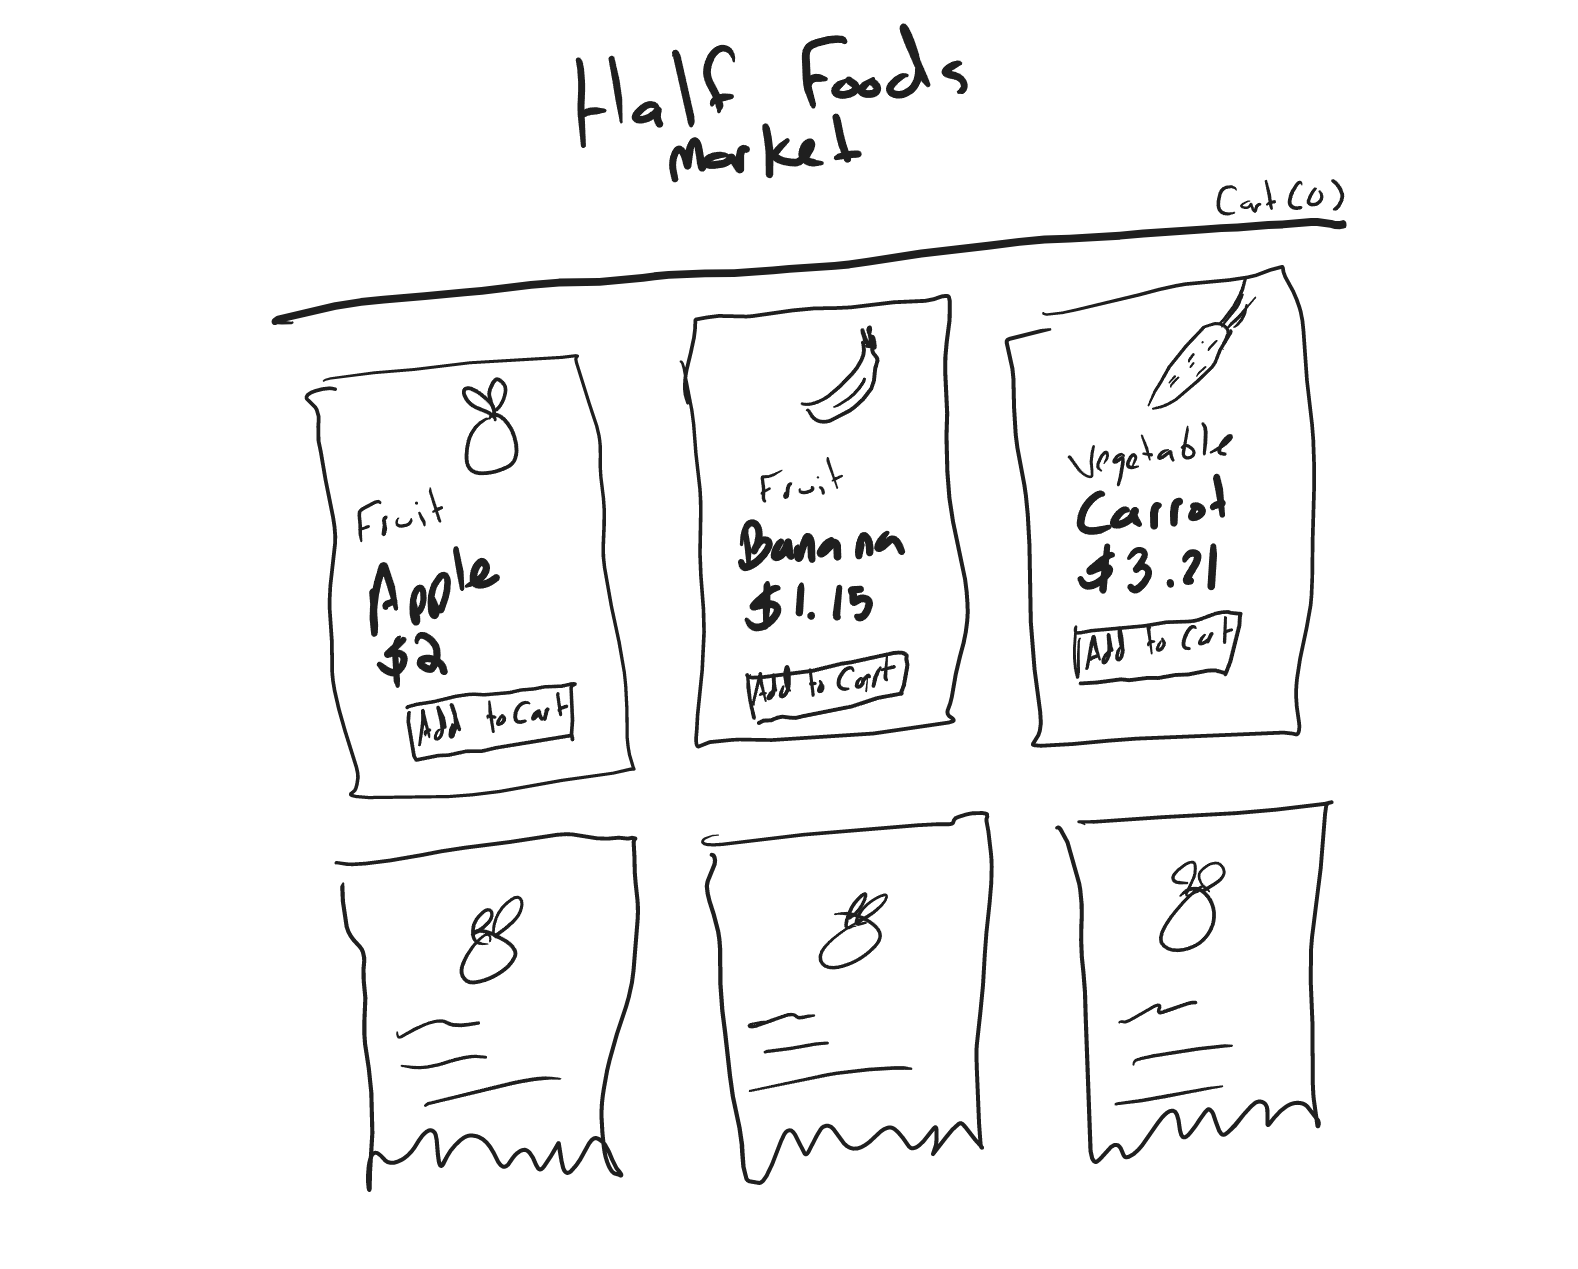 Half Foods
Market
Cart (0)
Fruit
Apple
$2
Add to Cart
Fruit
Banana
$1.15
Add to Cart
Vegetable
Carrot
$3.21
Add to Cart